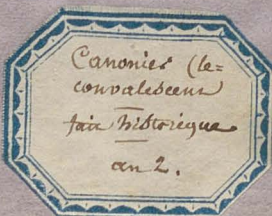 Canonier (le=
convalescent
fait historique
an 2.